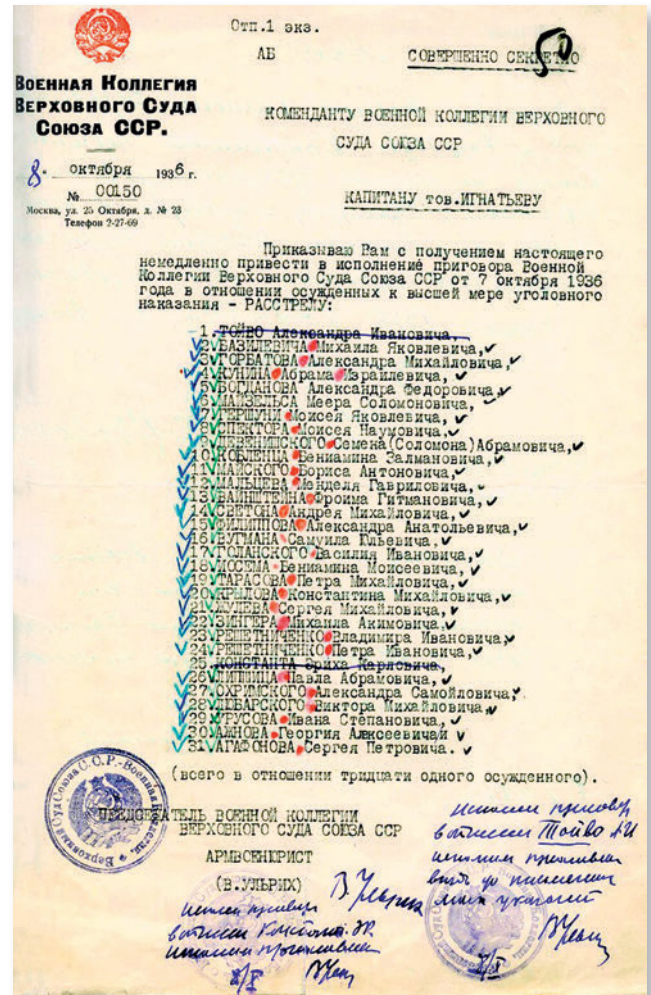 Отп.1 экз.
АБ
СОВЕРШЕННО СЕКРЕТНО
50
ВОЕННАЯ КОЛЛЕГИЯ
ВЕРХОВНОГО СУДА
СОЮЗА ССР.
8. октября 1936 г.
№ 00150
Москва, ул. 25 Октября, д. № 23
Телефон 2-27-69
КОМЕНДАНТУ ВОЕННОЙ КОЛЛЕГИИ ВЕРХОВНОГО
СУДА СОЮЗА ССР
КАПИТАНУ тов.ИГНАТЬЕВУ
Приказываю Вам с получением настоящего
немедленно привести в исполнение приговора Военной
Коллегии Верховного Суда Союза ССР от 7 октября 1936
года в отношении осужденных к высшей мере уголовного
наказания - РАССТРЕЛУ:
1. ТОЙВО Александра Ивановича,
2. БАЗИЛЕВИЧА Михаила Яковлевича,
3. ГОРБАТОВА Александра Михайловича,
4. КУНИНА Абрама Израилевича,
5. БОГДАНОВА Александра Федоровича,
6. МАЙЗЕЛЬСА Меера Соломоновича,
7. ГЕРШУНИ Моисея Яковлевича,
8. СПЕКТОРА Моисея Наумовича,
9. ЛЕВЕНИШСКОГО Семена(Соломона)Абрамовича,
10. КОБЛЕНЦА Вениамина Залмановича,
11. МАЙСКОГО Бориса Антоновича,
12. МАЛЬЦЕВА Менделя Гавриловича,
13. ВАЙНШТЕЙНА Фроима Гитмановича,
14. СВЕТОНА Андрея Михайловича,
15. ФИЛИППОВА Александра Анатольевича,
16. ВУГМАНА Самуила Юльевича,
17. ГОЛАНСКОГО Василия Ивановича,
18. МОСЕМА Вениамина Моисеевича,
19. ТАРАСОВА Петра Михайловича,
20. КРЫЛОВА Константина Михайловича,
21. ЖУЛЕВА Сергея Михайловича,
22. ЗИНГЕРА Михаила Акимовича,
23. РЕШЕТНИЧЕНКО Владимира Ивановича,
24. РЕШЕТНИЧЕНКО Петра Ивановича,
25. КОНСТАНТА Эриха Карловича,
26. ЛИПШИЦА Павла Абрамовича,
27. ОХРИМСКОГО Александра Самойловича,
28. ЛЮБАРСКОГО Виктора Михайловича,
29. УРУСОВА Ивана Степановича,
30. АЖНОВА Георгия Алексеевича,
31. АГАФОНОВА Сергея Петровича.
(всего в отношении тридцати одного осужденного).
ПРЕДСЕДАТЕЛЬ ВОЕННОЙ КОЛЛЕГИИ
ВЕРХОВНОГО СУДА СОЮЗА ССР
АРМВОЕНЮРИСТ
(В.УЛЬРИХ)
В. Ульрих
Тойво АИ
8/X
8/X